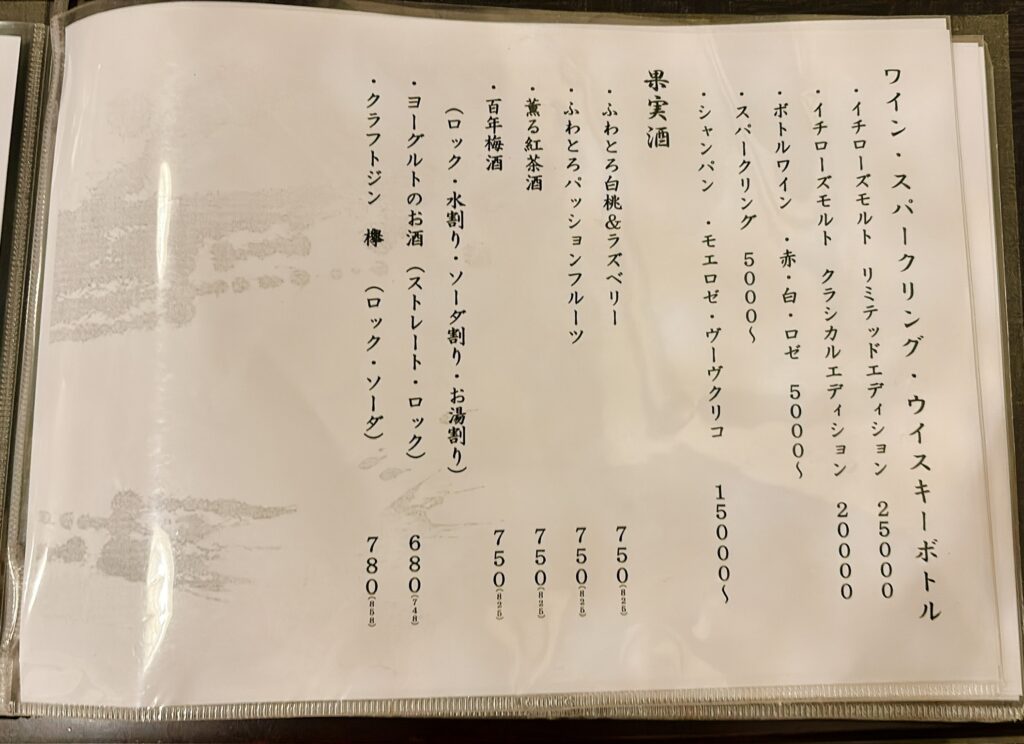 ワイン・スパークリング・ウイスキーボトル
・イチローズモルト リミテッドエディション 25000
・イチローズモルト クラシカルエディション 20000
・ボトルワイン ・赤・白・ロゼ 5000～
・スパークリング 5000～
・シャンパン ・モエロゼ・ヴーヴクリコ 15000～
果実酒
・ふわとろ白桃&ラズベリー 750(825)
・ふわとろパッションフルーツ 750(825)
・薫る紅茶酒 750(825)
・百年梅酒 750(825)
(ロック・水割り・ソーダ割り・お湯割り)
・ヨーグルトのお酒 (ストレート・ロック) 680(748)
・クラフトジン 欅 (ロック・ソーダ) 780(858)